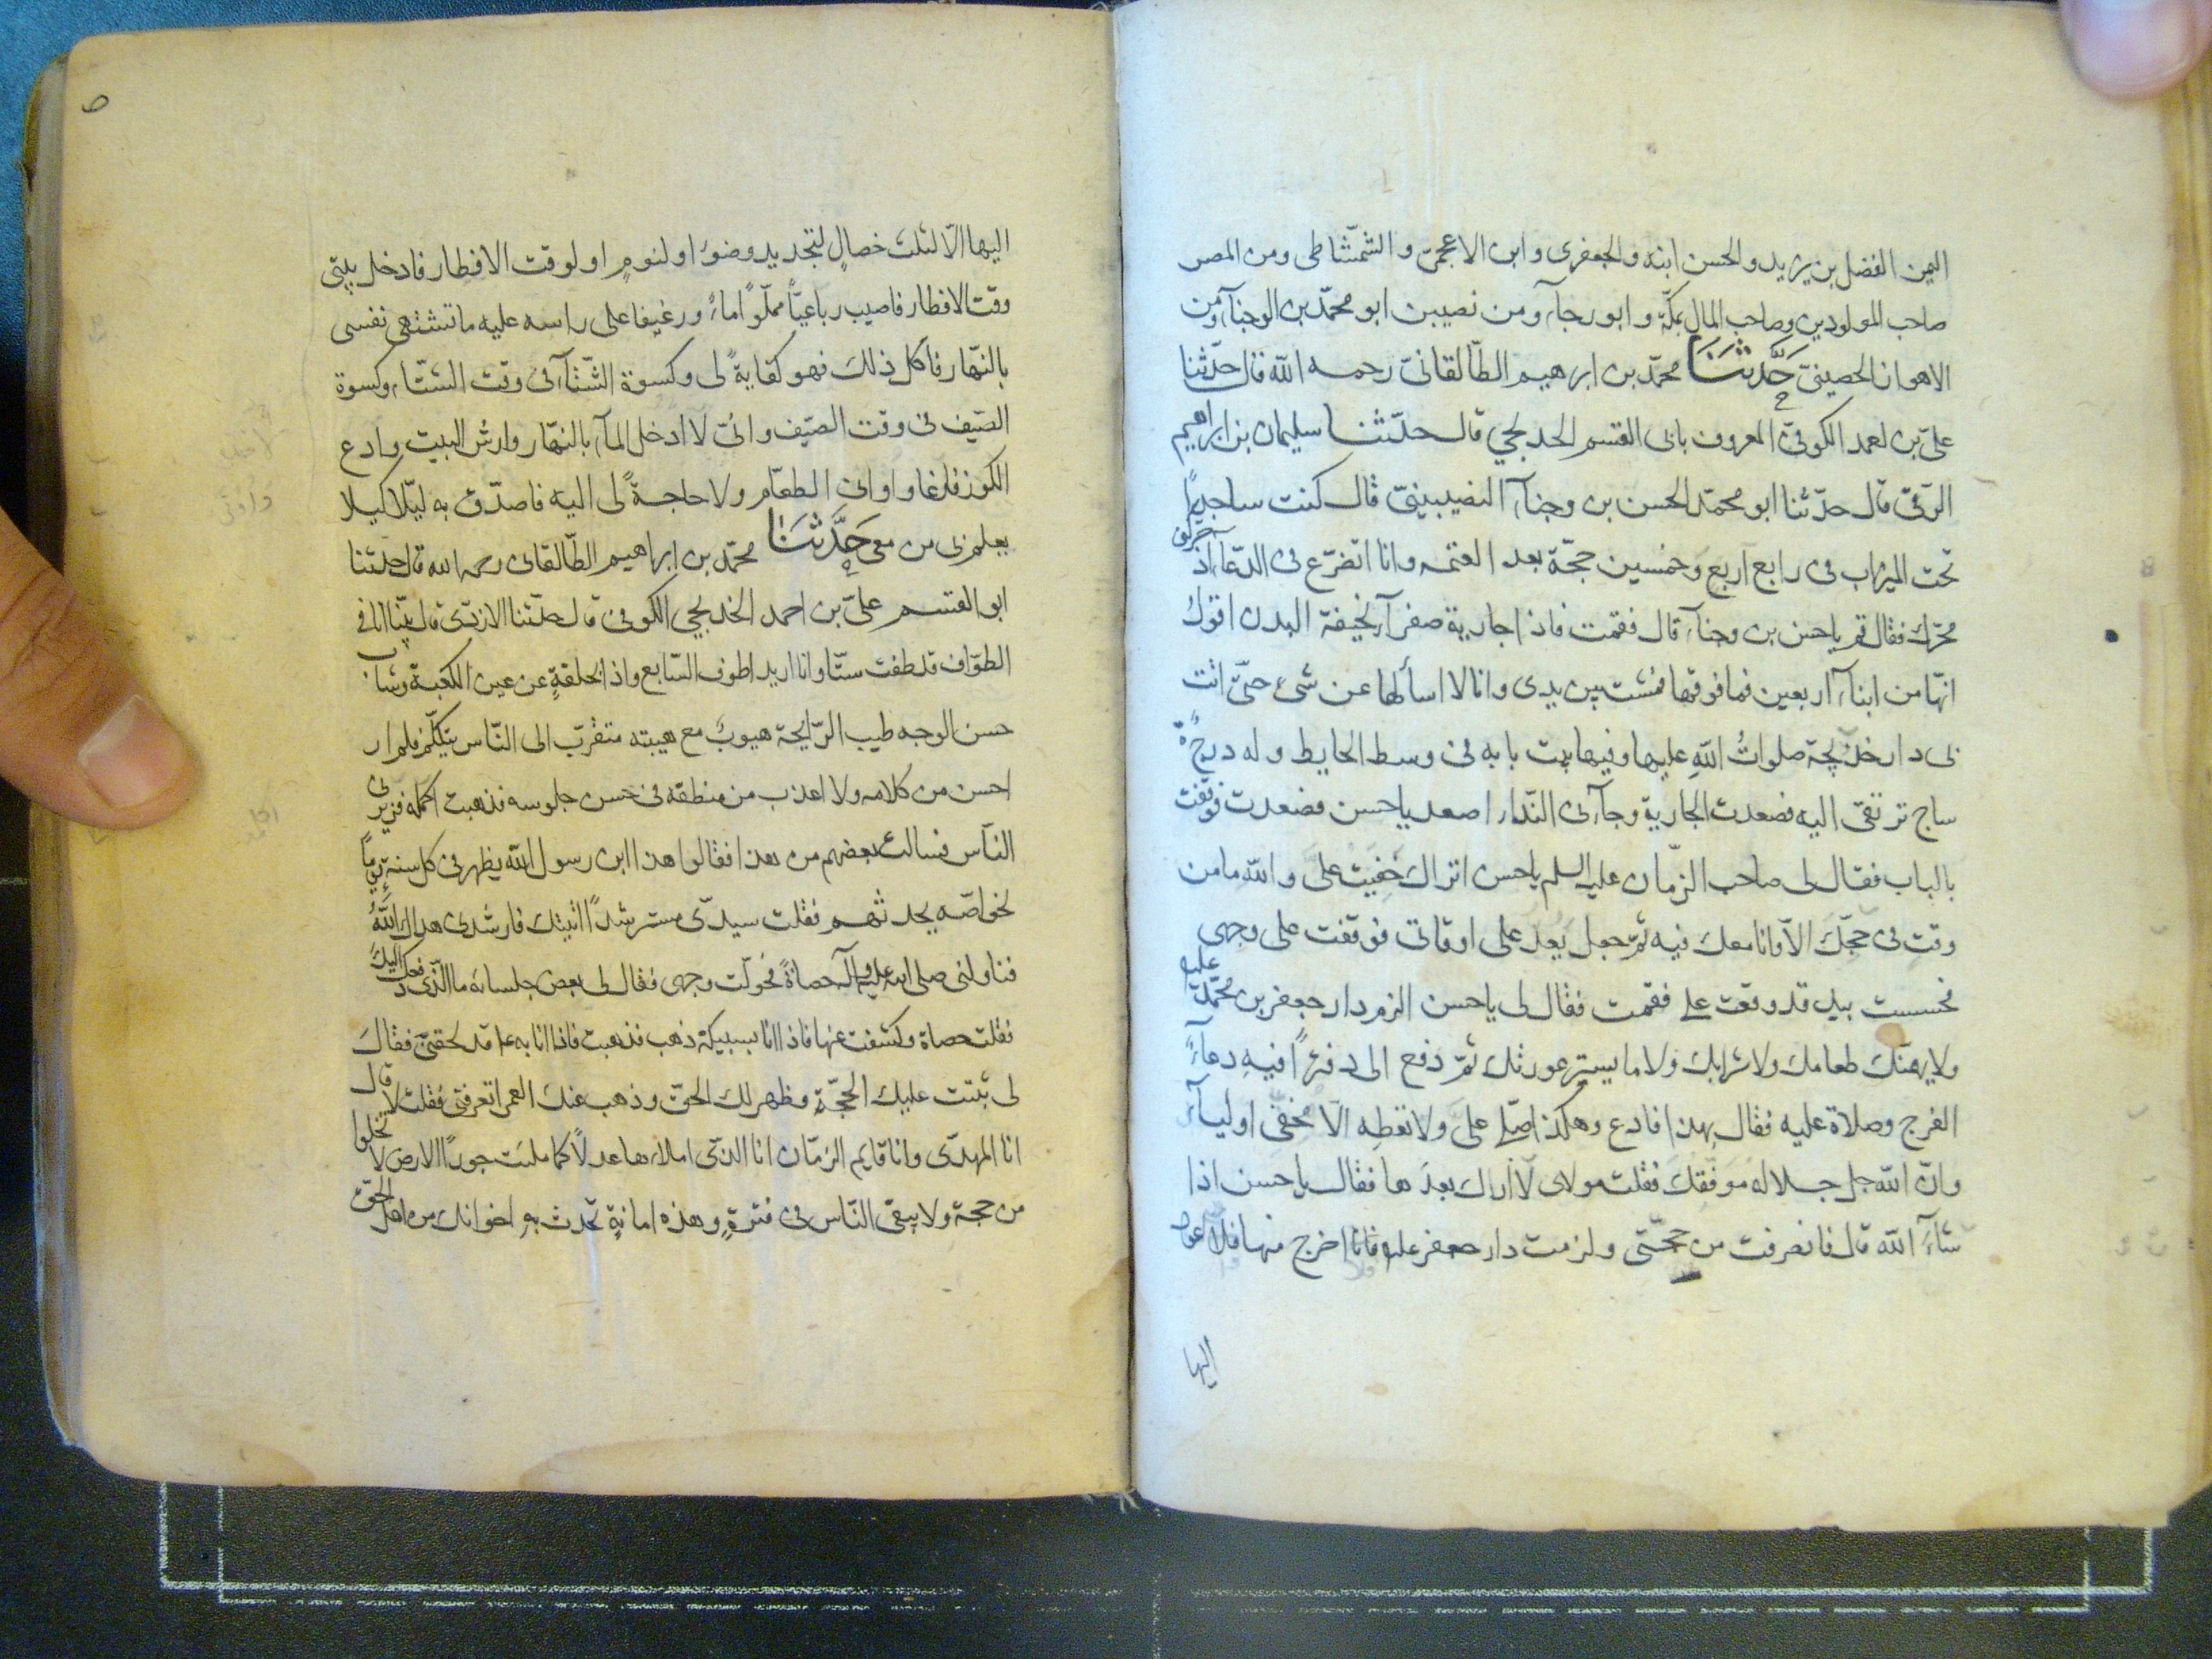 اليمن الفضل بن يزيد والحسن ابنه والجعفرى وابن الاعجمىّ والشمّشاطى ومن المصر
صاحب المولودين وصاحب المال بمكّة وابو رجآء ومن نصيبن ابو محمّد بن الوجنآء ومن
الاهوان الحصينىّ حَدَّثَنَا محمّد بن ابرهيم الطّالقانىّ رحمه الله قال حدّثنا
علىّ بن احمد الكوفىّ المعروف بابى القسم الخديجي قال حدّثنا سليمان بن ابراهيم
الرقّى قال حدّثنا ابو محمّد الحسن بن وجنآء النصيبينىّ قال كنت ساجداً
تحت الميزاب فى رابع اربع وخمسين حجّة بعد العتمه وانا اتضرّع فى الدّعآء اذ حرّكنى
محرّك فقال قم ياحسن بن وجنآء قال فقمت فاذا جارية صفرآء نحيفة البدن اقول
انّها من ابنآء اربعين فما فوقها فمشت بين يدى وانا لا اسألها عن شئ حتىّ اتت
بى دار خديجة صلواتُ اللهِ عليها وفيها بيت بابه فى وسط الحايط وله درجةٌ
ساج ترتقى اليه فصعدت الجارية وجآءنى النّداء اصعد ياحسن فصعدت فوقفت
بالباب فقال لى صاحب الزّمان عليه السلم ياحسن اتراك خفيت علىّ والله مامن
وقت فى حجّكَ الاّ وانا معك فيه ثمّ جعل يعدّ على اوقاتى فوقعت على وجهى
فحسست بيد قد وقعت على فقمت فقال لى ياحسن الزم دار جعفر بن محمّد عليه
ولا يهمّنك طعامك ولا شرابك ولا ما يستر عورتك ثمّ دفع الى دفتراً فيهِ دعآءً
الفرج وصلاة عليه فقال بهذا فادع وهكذا صلّ علىّ ولا تعطِه الاّ محقّى اوليآء
وانّ الله جلّ جلاله موفّقكَ فقلت مولاى لا اراك بعدَها فقال ياحسن اذا
شآءَ الله قال فانصرفت من حجّتى ولزمت دار جعفر عليه فانا اخرج منها فلا اعود
اليها
اليها الاّ لثلث خصالٍ لتجديد وضوءٍ او لنومٍ او لوقت الافطار فادخل بيتى
وقت الافطار فاصيب رباعيّاً مملوًّا ماءً ورغيفا على راسه عليه ما تشتهى نفسى
بالنّهار فآكل ذلك فهو كفايةً لى وكسوة الشّتآء فى وقت الشتّاء وكسوة
الصّيف فى وقت الصّيف وانّى لا ادخل المآء بالنهّار وارشّ البيت وادع
الكوز فارغا واوانى الطعّام ولا حاجةً لى اليه فاصدّق به ليّلا كيلا
يعلم بى من معى حَدَّثَنَا محمّد بن ابراهيم الطّالقانى رحمه الله قال حدّثنا
ابو القسم علىّ بن احمد الخديجي الكوفى قال حدّثنا الازدىّ قال بيّنا انا فى
الطوّاف قد طفت ستّا وانا اريد اطوف السّابع واذا بحلقةٍ عن عين الكعبة وشاب
حسن الوجه طيب الرّايحة هيوبٌ مع هيبته متقرّب الى النّاس يتكلّم فلم ار
احسن من كلامه ولا اعذب من منطقه فى حسن جلوسه فذهبت اكلمّه فزبرنى
النّاس فسالت بعضهم من هذا فقالوا هذا ابن رسول الله يظهر فى كل سنة يوماً
لخواصّه يحدثهم فقلت سيدّى مسترشداً اتيتك فارشدنى هداك اللهُ
فناولنى صلى الله عليه وآله حصاةً فحولّت وجهى فقال لى بعض جلسائه ما الذّى دفع اليك
فقلت حصاة وكشفت عنها فاذا انا بسبيكة ذهب فذهبت فاذا انا به ع قد لحقنىّ فقالَ
لى ثبتت عليك الحجّة وظهر لك الحقّ وذهب عنك العمى اتعرفنى فقلت لا قال
انا المهدّى وانا قايم الزمّان انا الذىّ املاءها عدلاً كما ملئت جوراً الارض لا تخلوا
من حجة ولا يبقى النّاس فى فترةٍ وهذه امانةٍ تحدث بهِ اخوانك من اهل الحقّ